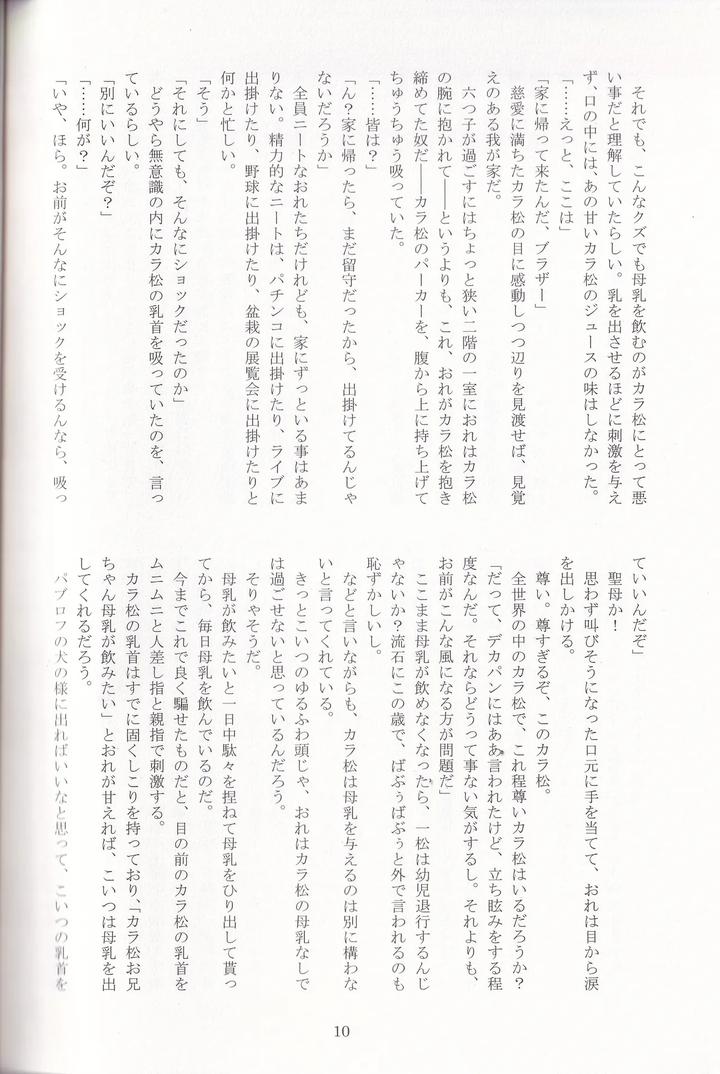 それでも、こんなクズでも母乳を飲むのがカラ松にとって悪
い事だと理解していたらしい。乳を出させるほどに刺激を与え
ず、口の中には、あの甘いカラ松のジュースの味はしなかった。
「……えっと、ここは」
「家に帰って来たんだ、ブラザー」
慈愛に満ちたカラ松の目に感動しつつ辺りを見渡せば、見覚
えのある我が家だ。
六つ子が過ごすにはちょっと狭い二階の一室におれはカラ松
の腕に抱かれて――というよりも、これ、おれがカラ松を抱き
締めてた奴だ――カラ松のパーカーを、腹から上に持ち上げて
ちゅうちゅう吸っていた。
「……皆は?」
「ん?家に帰ったら、まだ留守だったから、出掛けてるんじゃ
ないだろうか」
全員ニートなおれたちだけれども、家にずっといる事はあま
りない。精力的なニートは、パチンコに出掛けたり、ライブに
出掛けたり、野球に出掛けたり、盆栽の展覧会に出掛けたりと
何かと忙しい。
「そう」
「それにしても、そんなにショックだったのか」
どうやら無意識の内にカラ松の乳首を吸っていたのを、言っ
ているらしい。
「別にいいんだぞ?」
「……何が?」
「いや、ほら。お前がそんなにショックを受けるんなら、吸っ
ていいんだぞ」
聖母か!
思わず叫びそうになった口元に手を当てて、おれは目から涙
を出しかける。
尊い。尊すぎるぞ、このカラ松。
全世界の中のカラ松で、これ程尊いカラ松はいるだろうか?
「だって、デカパンにはああ言われたけど、立ち眩みをする程
度なんだ。それならどうって事ない気がするし。それよりも、
お前がこんな風になる方が問題だ」
ここまま母乳が飲めなくなったら、一松は幼児退行するんじ
ゃないか?流石にこの歳で、ばぶぅばぶぅと外で言われるのも
恥ずかしいし。
などと言いながらも、カラ松は母乳を与えるのは別に構わな
いと言ってくれている。
きっとこいつのゆるふわ頭じゃ、おれはカラ松の母乳なしで
は過ごせないと思っているんだろう。
そりゃそうだ。
母乳が飲みたいと一日中駄々を捏ねて母乳をひり出して貰っ
てから、毎日母乳を飲んでいるのだ。
今までこれで良く騙せたものだと、目の前のカラ松の乳首を
ムニムニと人差し指と親指で刺激する。
カラ松の乳首はすでに固くしこりを持っており、「カラ松お兄
ちゃん母乳が飲みたい」とおれが甘えれば、こいつは母乳を出
してくれるだろう。
パブロフの犬の様に出ればいいなと思って、こいつの乳首を
10